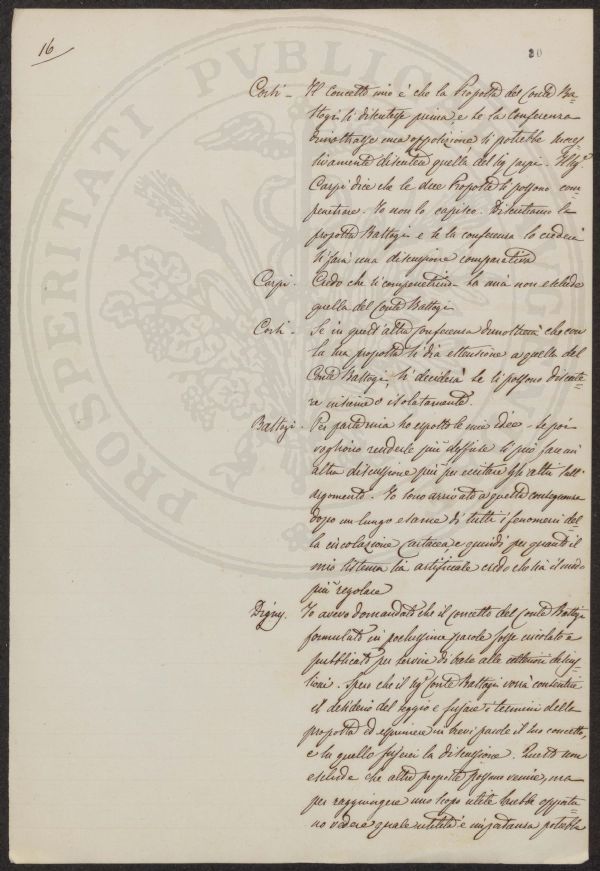 16
20
PROSPERITATI PVBLICAE
Corsi - Il concetto mio è che la Proposta del Conte Ba=
stogi si discutesse prima, e se la conferenza
dimostrasse una opposizione si potrebbe succes=
sivamente discutere quella del Sig Carpi. Il Sigr
Carpi dice che le due Proposte si possono com=
penetrare. Io non lo capisco. Discutiamo la
proposta Bastogi e se la conferenza lo crederà
si farà una discussione comparativa
Carpi. Credo che si compenetrino - La mia non esclude
quella del Conte Bastogi
Corsi - Se in quest'altra conferenza dimostrerà che con
la sua proposta si dia estensione a quella del
Conte Bastogi, si deciderà se si possono discute=
re insieme o isolatamente.
Bastogi. Per parte mia ho esposto le mie idee - Se poi
vogliono renderle più diffuse si può fare un'
altra discussione più per eccitare gli altri sull'
argomento. Io sono arrivato a questa conseguenza
dopo un lungo esame di tutti i fenomeni del=
la circolazione cartacea, e quindi per quanto il
mio sistema sia artificiale credo che sia il modo
più regolare
Digny. Io avevo domandato che il concetto del Conte Bastogi
formulato in pochissime parole fosse
pubblicato per servire di base alle discus=
sioni. Spero che il Sigr Conte Bastogi vorrà consentire
il desiderio del seggio e fissare i termini della
proposta ed esprimere in brevi parole il suo concetto,
e su quello fissarci la discussione. Questo non
esclude che altre proposte possano venire, ma
per raggiungere uno scopo utile sarebbe opportu=
no vedere quale utilità e importanza potrebbe